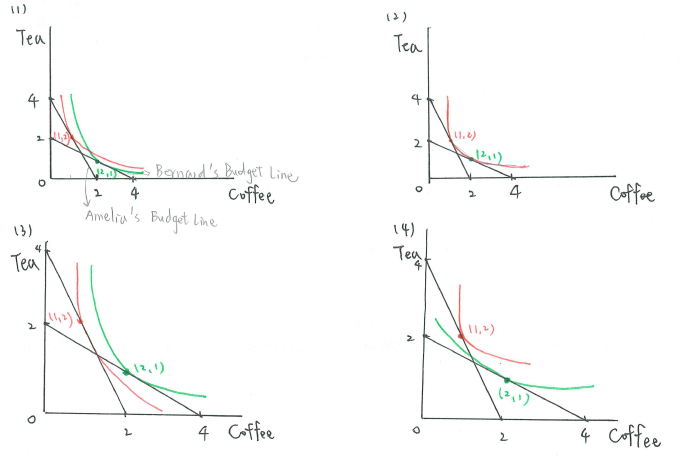 (1)
Tea
4
2
(1,2)
(2,1)
0
2
4
Coffee
Bernard's Budget Line
Amelia's Budget Line
(2)
Tea
4
2
(1,2)
(2,1)
0
2
4
Coffee
(3)
Tea
4
2
(1,2)
(2,1)
0
2
4
Coffee
(4)
Tea
4
2
(1,2)
(2,1)
0
2
4
Coffee